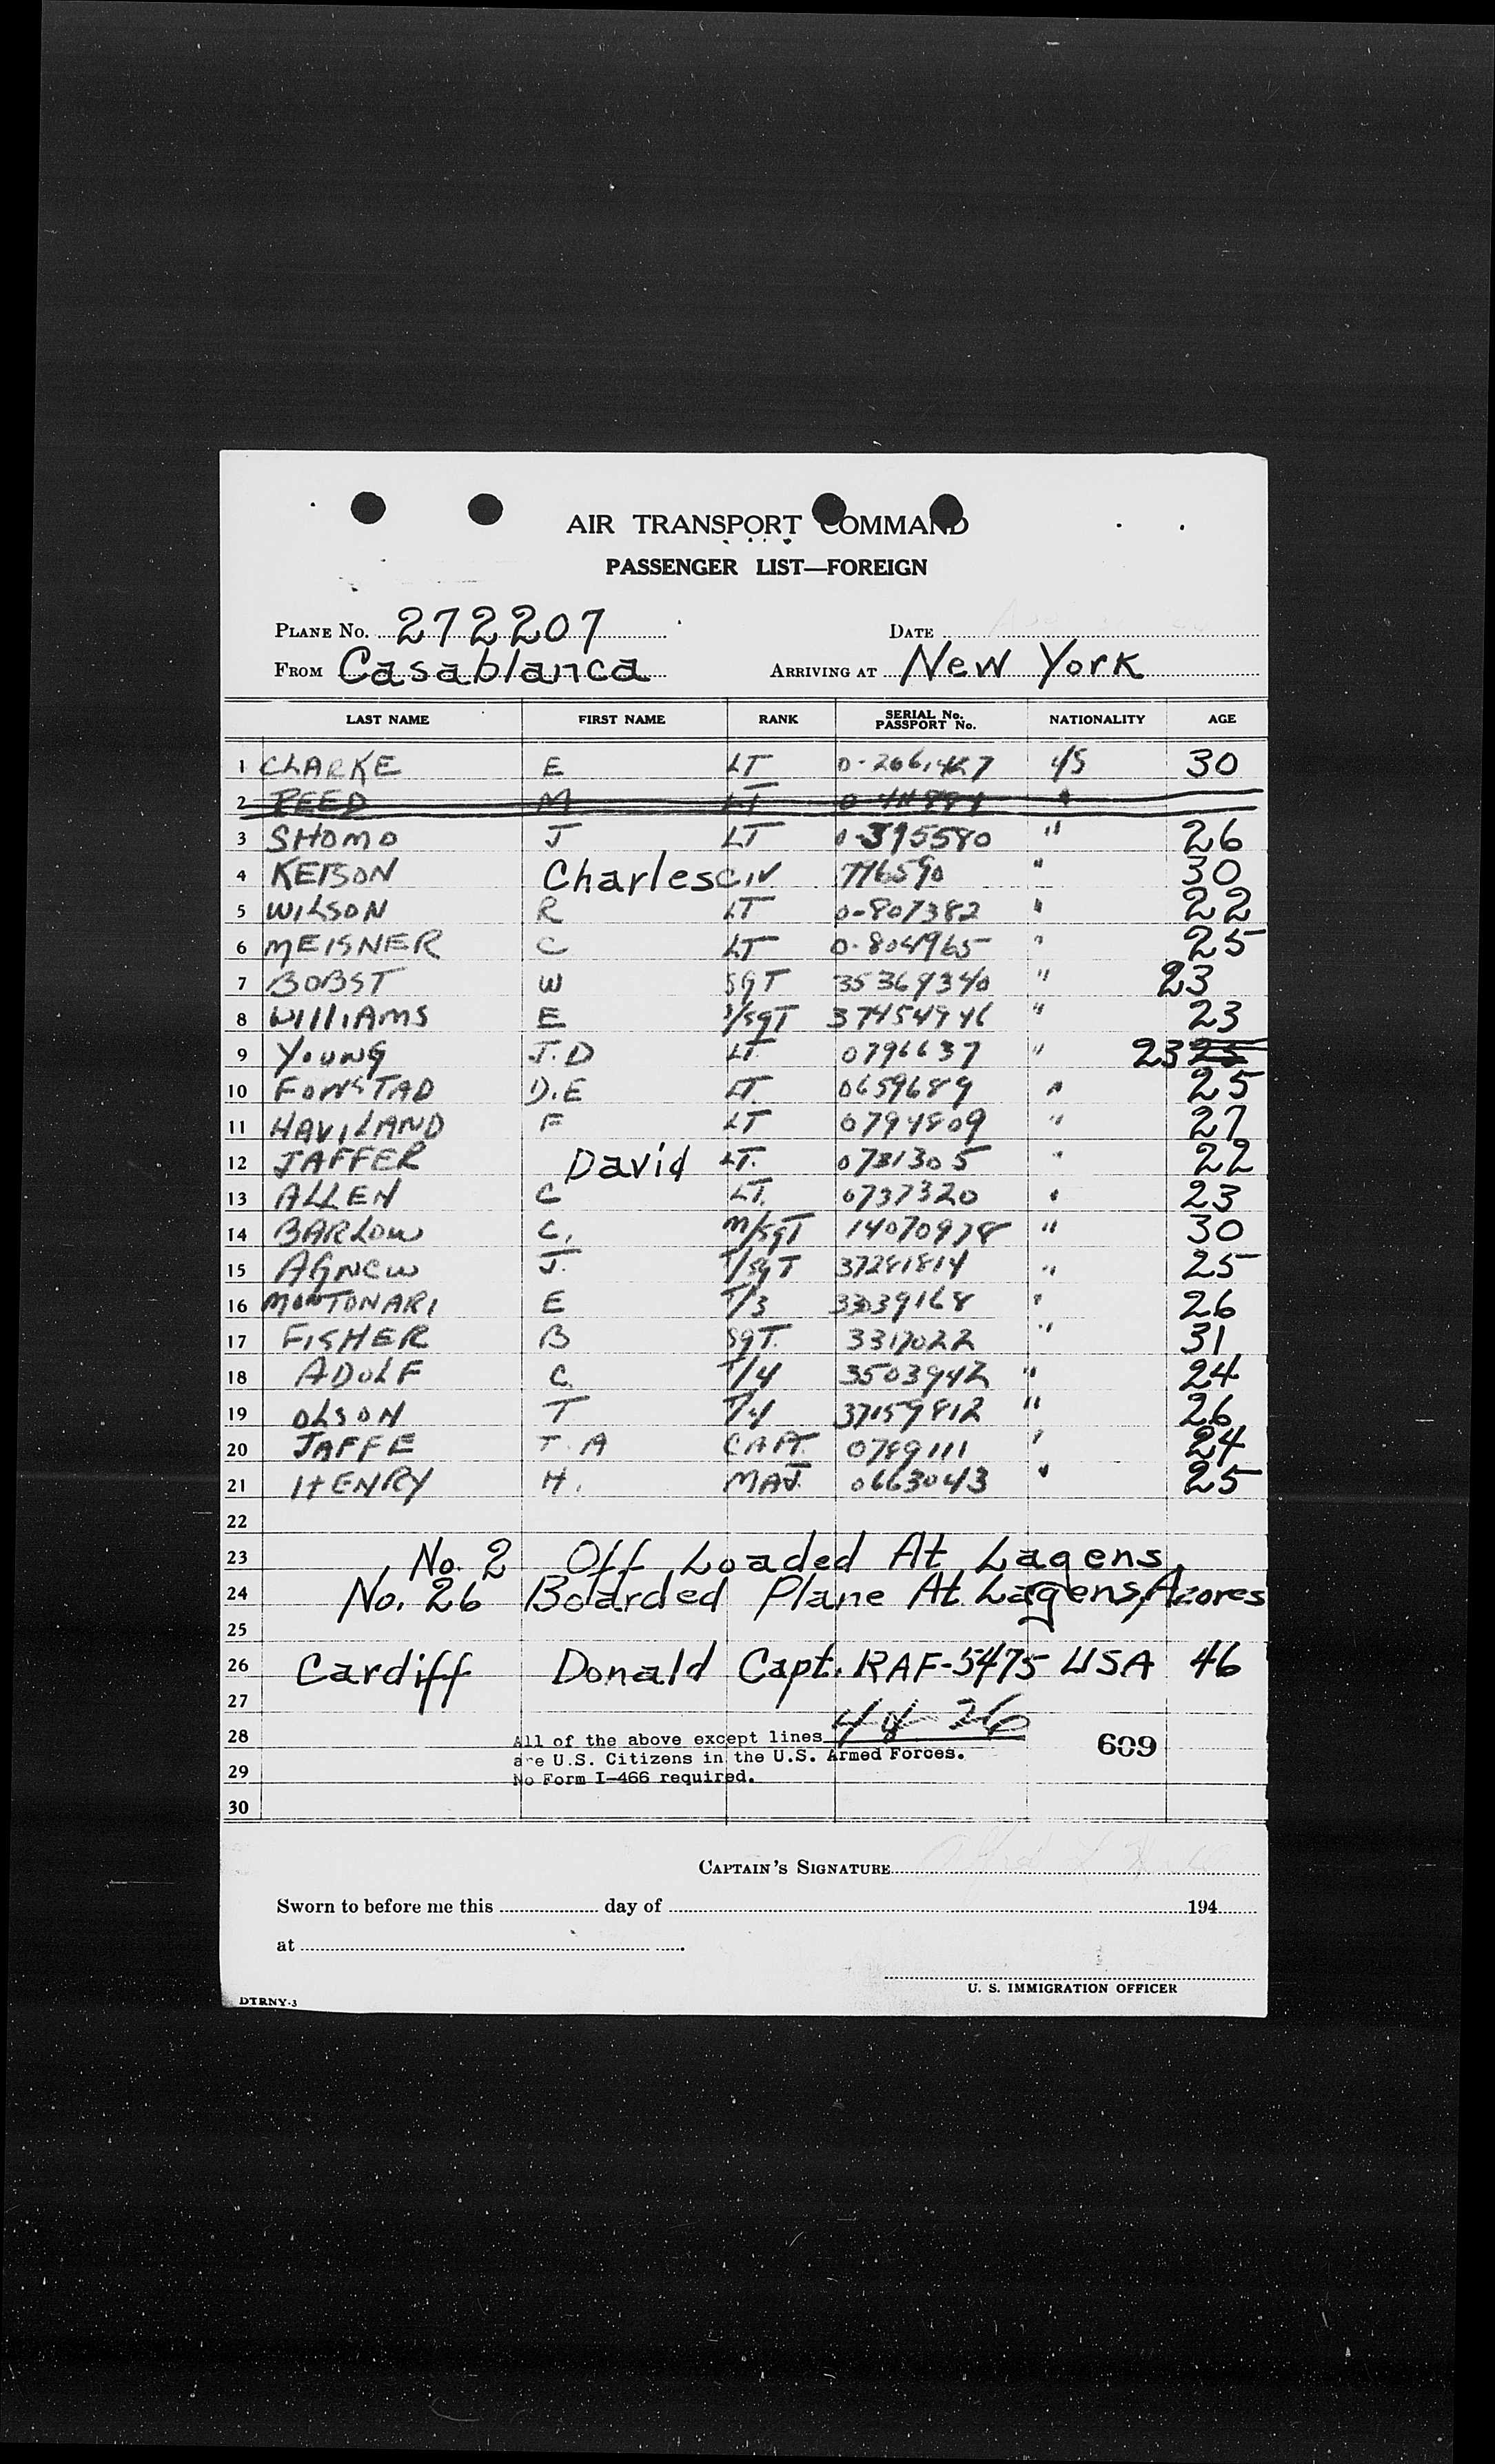 AIR TRANSPORT COMMAND
PASSENGER LIST—FOREIGN
PLANE No. 272207 DATE
FROM Casablanca ARRIVING AT New York
LAST NAME FIRST NAME RANK SERIAL No. PASSPORT No. NATIONALITY AGE
1 CLARKE E LT US 30
2 REED M LT "
3 SHOMO J LT 0-395580 " 26
4 KETSON Charles CIV 776590 " 30
5 WILSON R LT 0-807382 " 22
6 MEISNER C LT 0-804965 " 25
7 BOBST W SGT 35369340 " 23
8 WILLIAMS E S/SGT 37454946 " 23
9 YOUNG J.D LT. 0796637 " 23 25
10 FONSTAD D.E LT. 0659689 " 25
11 HAVILAND F LT 0794809 " 27
12 JAFFER David LT. 0731305 " 22
13 ALLEN C LT. 0737320 " 23
14 BARLOW C. M/SGT 14070978 " 30
15 AGNEW J. T/SGT 37281814 " 25
16 MONTONARI E T/3 33039168 " 26
17 FISHER B SGT. 3317022 " 31
18 ADOLF C. T/4 3503942 " 24
19 OLSON T T/4 37159812 " 26
20 JAFFE T. A CAPT. 0789111 " 24
21 HENRY H. MAJ. 0663043 " 25
22
23 No. 2 Off Loaded At Lagens,
24 No. 26 Boarded Plane At Lagens, Azores
25
26 Cardiff Donald Capt. RAF-5475 USA 46
27
28 All of the above except lines 4 26 609
are U.S. Citizens in the U.S. Armed Forces.
29 No Form I-466 required.
30
CAPTAIN'S SIGNATURE
Sworn to before me this day of 194
at
U. S. IMMIGRATION OFFICER
DTRNY-3